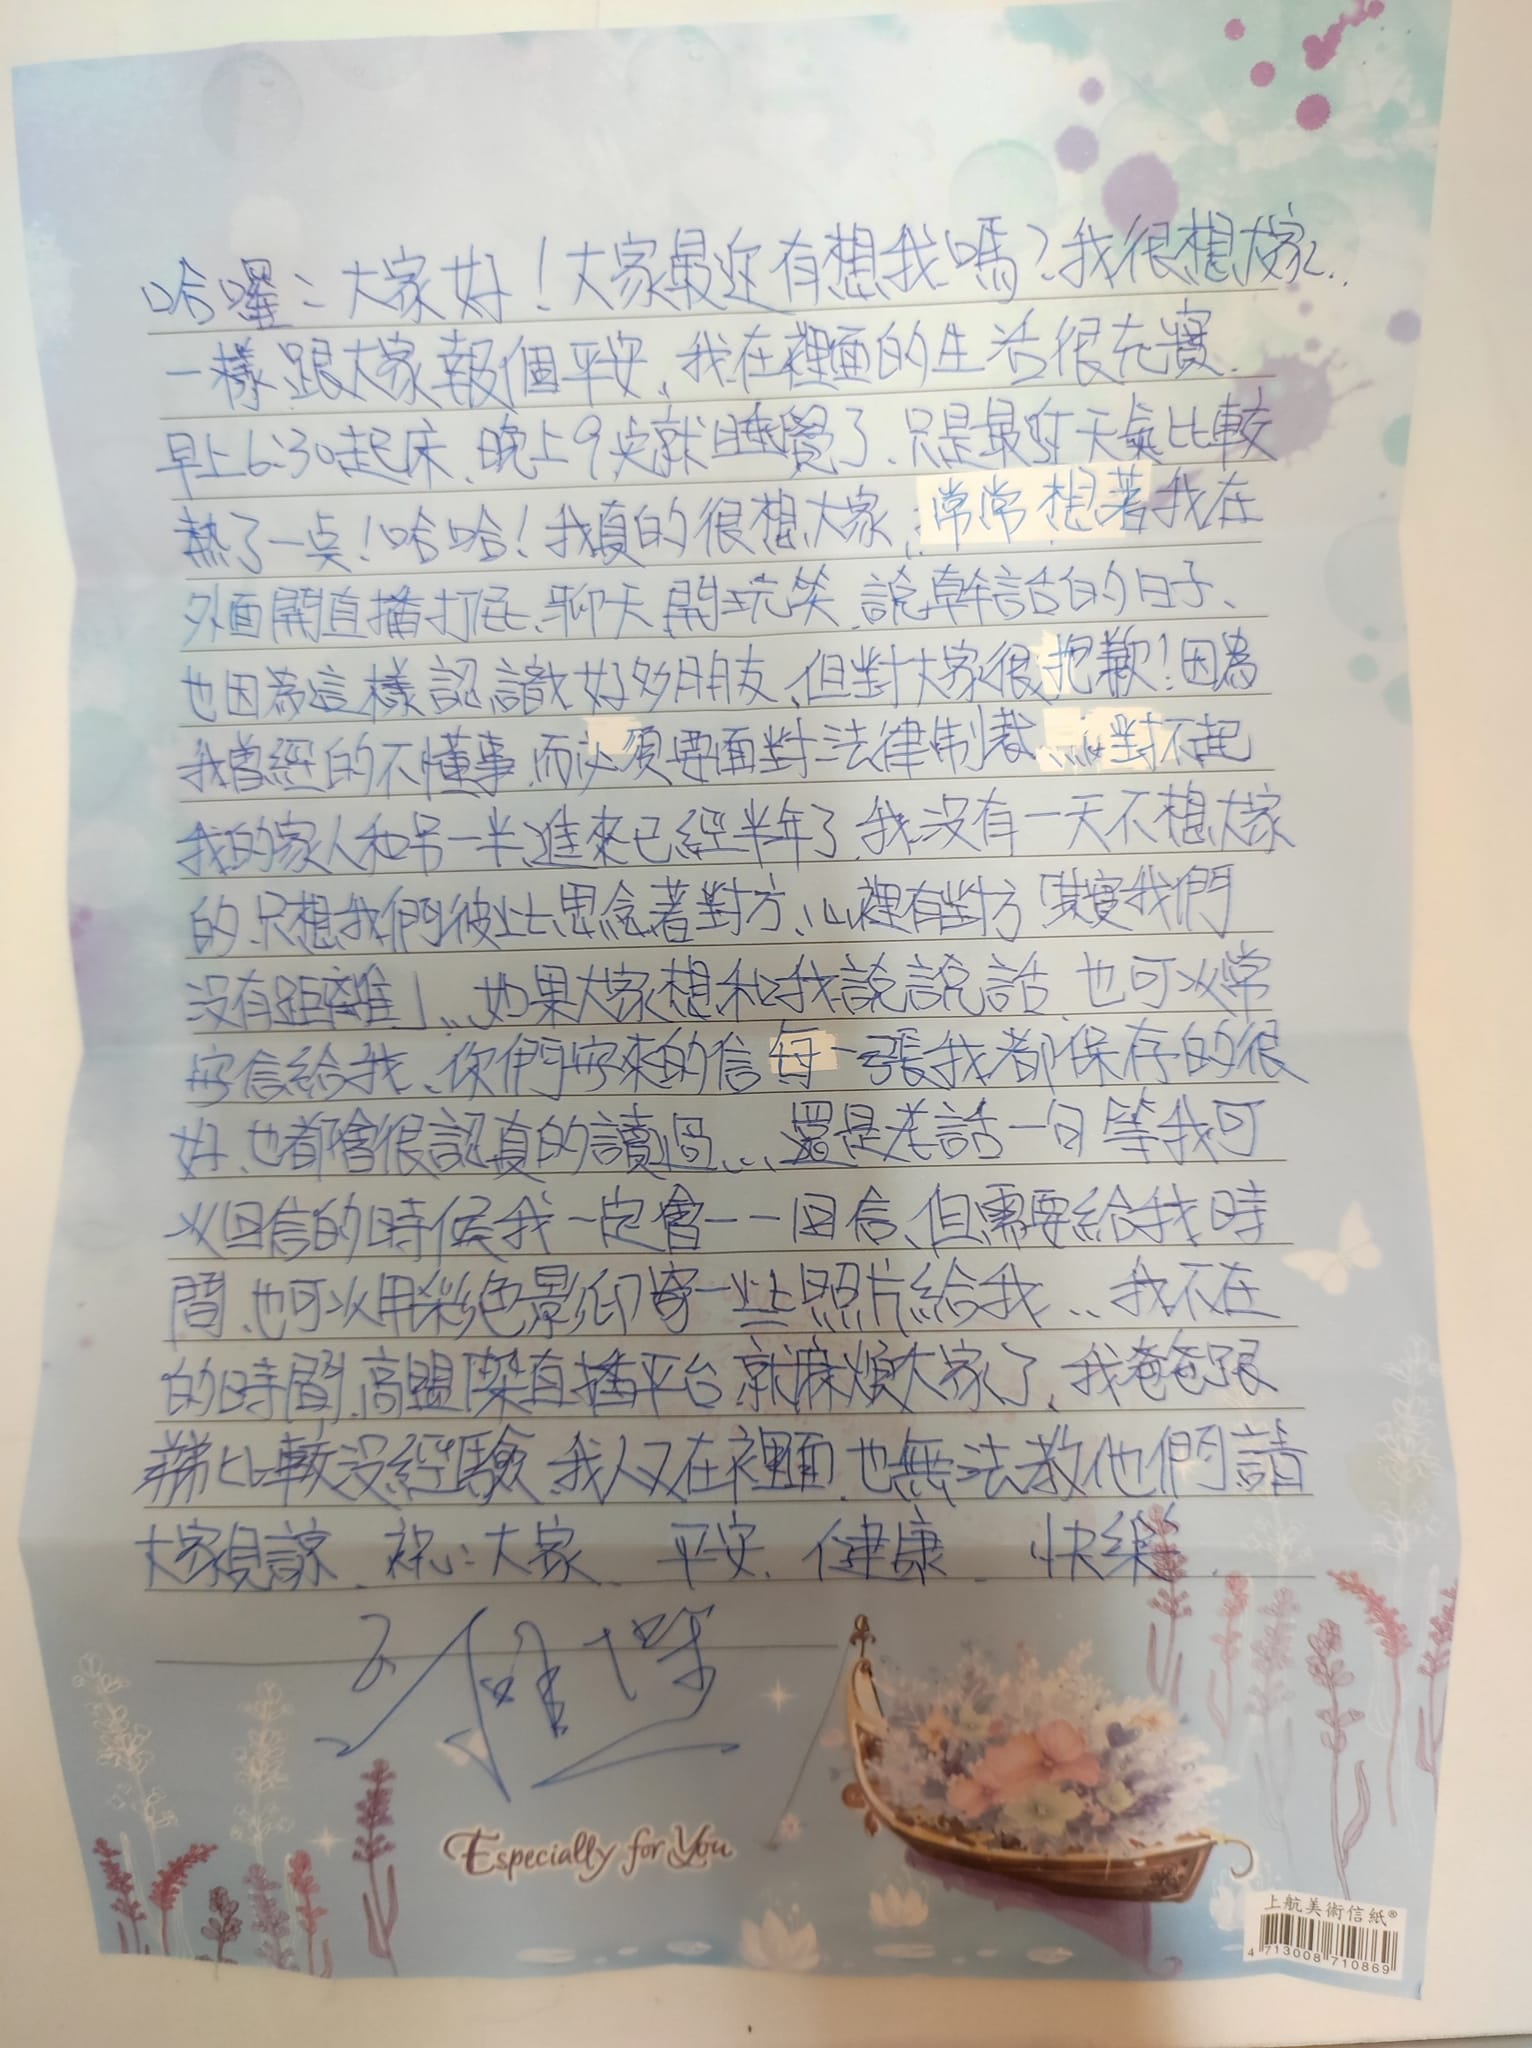 哈囉:大家好!大家最近有想我嗎?我很想大家.
一樣跟大家報個平安、我在裡面的生活很充實.
早上6:30起床、晚上9点就睡覺了.只是最近天氣比較
熱了一点!哈哈!我真的很想大家,常常想著我在
外面開直播打屁、聊天開玩笑、說幹話的日子、
也因為這樣認識好多朋友、但對大家很抱歉!因為
我曾經的不懂事、而必須要面對法律制裁...對不起
我的家人和另一半、進來已經半年了、我沒有一天不想大家
的、只想我們彼此思念著對方、心裡有對方「其實我們
沒有距離」...如果大家想和我說說話 也可以常
寄信給我、你們寄來的信每一張我都保存的很
好、也都會很認真的讀過...還是老話一句 等我可
以回信的時候我一定會一一回信、但需要給我時
間、也可以用彩色影印寄一些照片給我...我不在
的時間、高盟傑直播平台就麻煩大家了、我爸爸跟
弟比較沒經驗、我人又在裡面、也無法教他們請
大家見諒、祝:大家、平安、健康、快樂.
Especially for You
上航美術信紙®
4 713008 710869